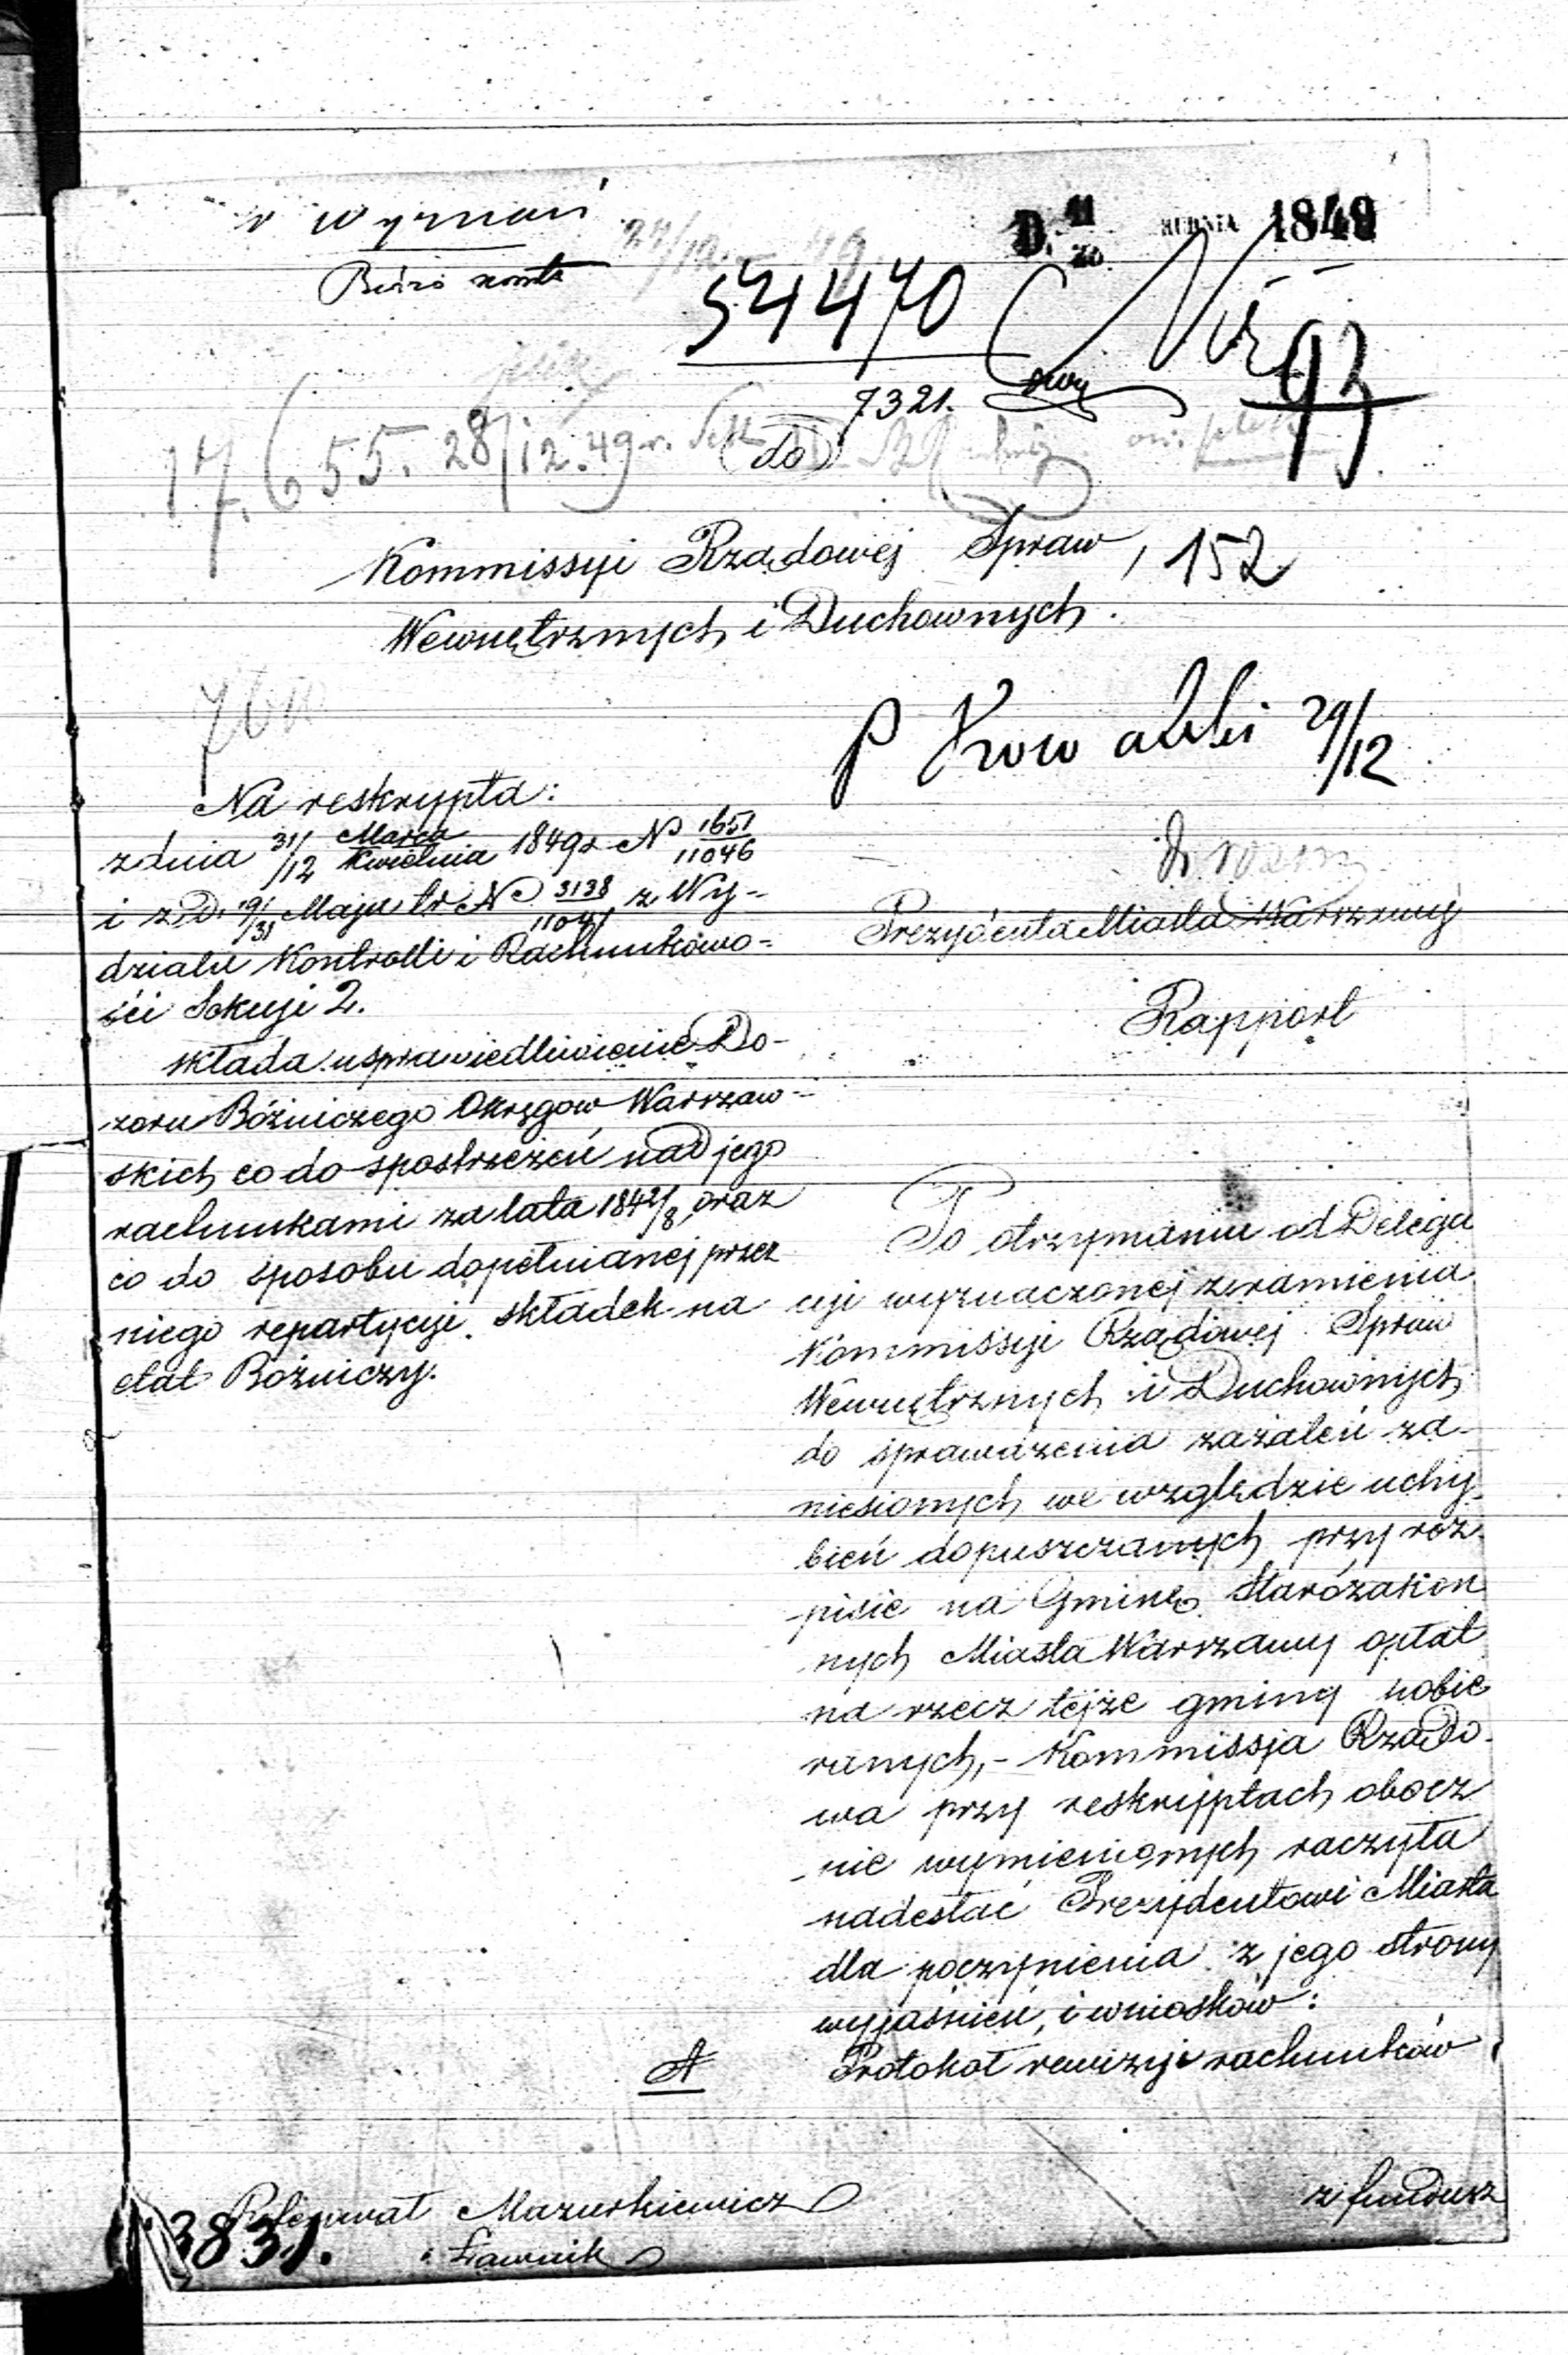 Biuro
D. 11/20 1849
54470
93
7321.
17,655. 28/12.49 r.
do
Kommissyi Rządowéj Spraw
152
Wewnętrznych i Duchownych.
P Kowalski 29/12
Na reskrypta:
z dnia 31/12 Marca/Kwietnia 1849 r. No 1651/11046
i z D. 19/31 Maja tr No 3138/11047 z Wy-
działu Kontrolli i Rachunkowo-
ści Sekcyi 2.
składa usprawiedliwienie Do-
zoru Bóżniczego Okręgów Warszaw-
skich co do spostrzeżeń nad jego
rachunkami za lata oraz
co do sposobu dopełnianej przez
niego repartycyi składek na
etat Bóżniczy.
Prezydenta Miasta Warszawy
Rapport
Po otrzymaniu od Delega
cyi wyznaczonej z ramienia
Kommissyi Rządowej Spraw
Wewnętrznych i Duchownych
do sprawdzenia zażaleń za-
niesionych we względzie uchy
bień dopuszczanych przy roz-
pisie na Gminę Starozakon
nych Miasta Warszawy opłat
na rzecz tejże gminy pobie
ranych, - Kommissja Rządo-
wa przy reskryptach obocz
nie wymienionych raczyła
nadesłać Prezydentowi Miasta
dla poczynienia z jego strony
wyjaśnień, i wniosków:
A Protokół rewizyi rachunków
z fundusz
Referował Mazurkiewicz
Ławnik
3831.